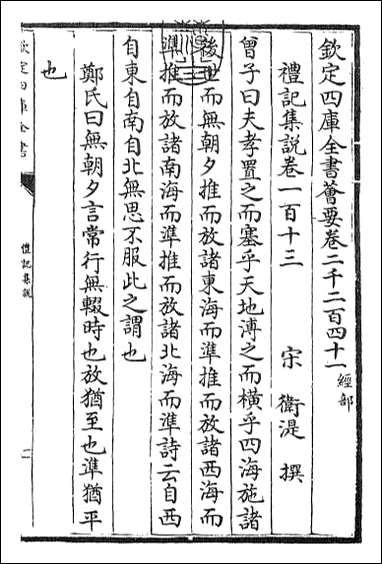 欽定四庫全書薈要卷二千二百四十一 經部
禮記集說卷一百十三
宋 衛湜 撰
曾子曰夫孝置之而塞乎天地溥之而橫乎四海施諸
後世而無朝夕推而放諸東海而準推而放諸西海而
準推而放諸南海而準推而放諸北海而準詩云自西
自東自南自北無思不服此之謂也
鄭氏曰無朝夕言常行無輟時也放猶至也準猶平
也
欽定四庫全書
禮記集說
一